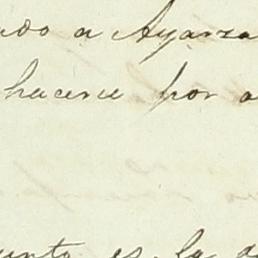 ado a Ayarza
hacerse por a
unto es la a